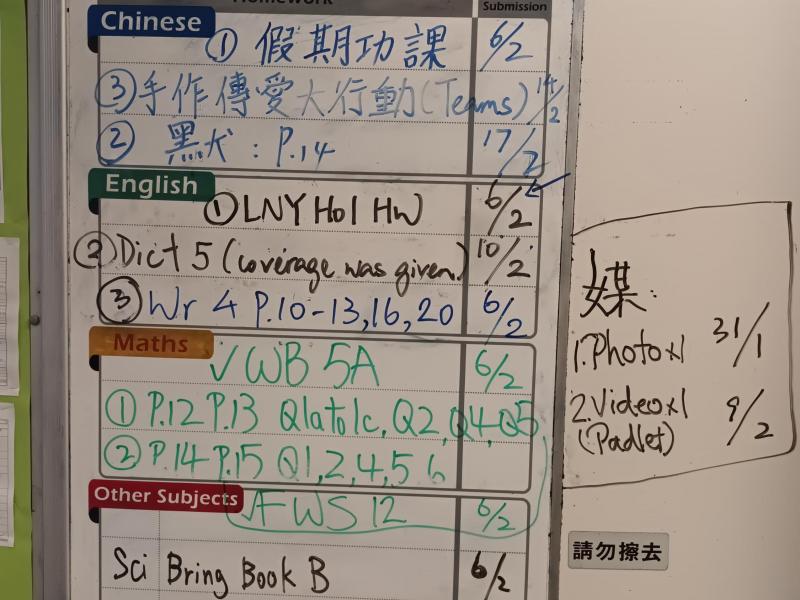 Homework
Submission
Chinese
① 假期功課 6/2
③ 手作傳愛大行動(Teams) 14/2
② 黑犬：P.14 17/2
English
① LNY Hol HW 6/2
② Dict 5 (coverage was given.) 10/2
③ Wr 4 P.10-13,16,20 6/2
Maths
✓ WB 5A 6/2
① P.12 P.13 Q1a to 1c, Q2, Q4, Q5,
② P.14 P.15 Q1,2,4,5 6
Other Subjects
✓ FWS 12 6/2
Sci Bring Book B 6/2
媒:
1. Photo x1 31/1
2. Video x1 9/2
(Padlet)
請勿擦去